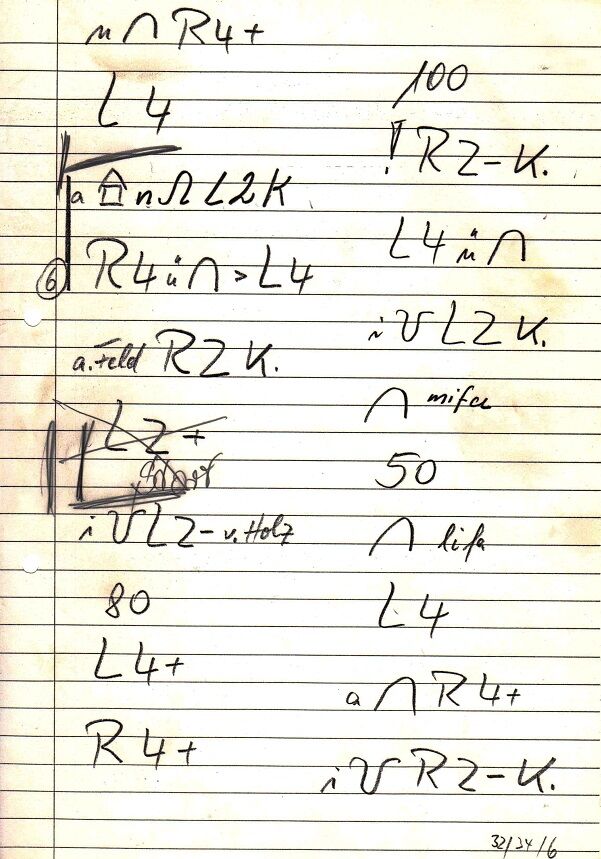 ü ∩ R4+
L 4
a ⌂ n Ω L2K
⑥ R4 ü ∩ > L4
a. Feld R2 K.
L2+
i V L2- v. Holz
80
L4+
R4+
100
! R2-K.
L4 ü ∩
i V L2 K.
∩ mifa
50
∩ lifa
L4
a ∩ R4+
i V R2-K.
32/34/6